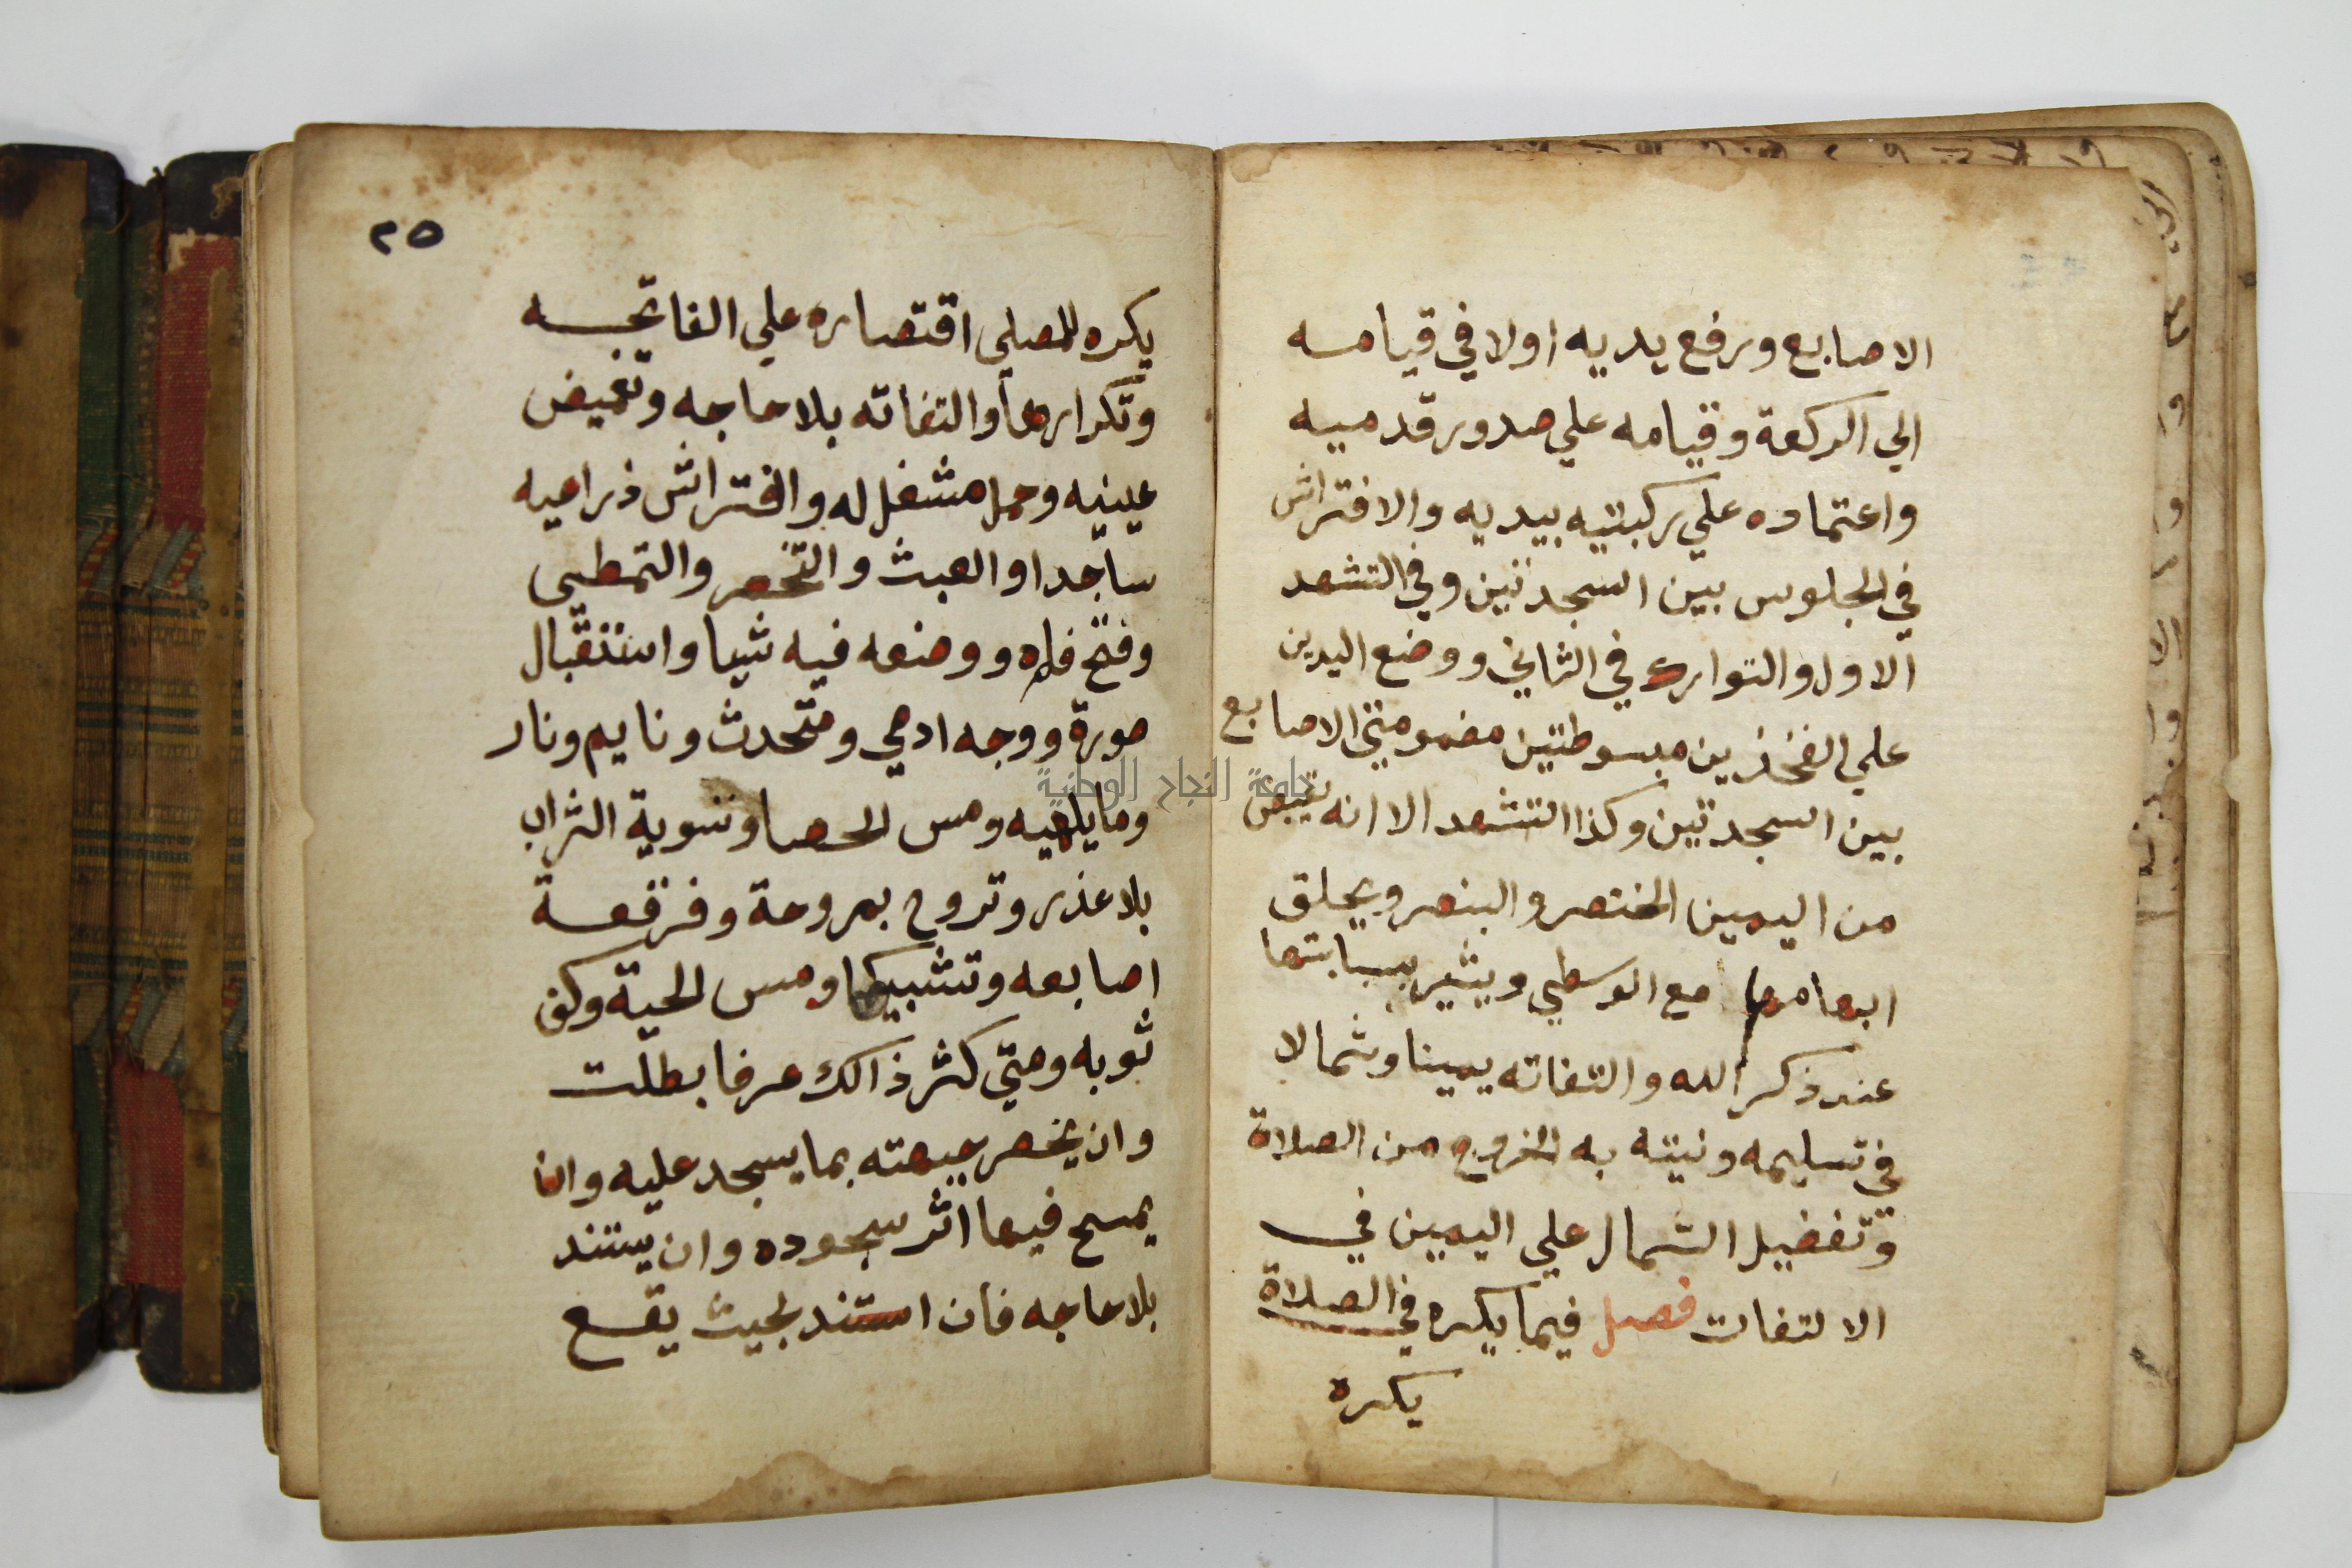 الاصابع ورفع يديه اولا في قيامه
الي الركعة وقيامه علي صدور قدميه
واعتماده علي ركبتيه بيديه والافتراش
في الجلوس بين السجدتين وفي التشهد
الاول والتوارك في الثاني ووضع اليدين
علي الفخذين مبسوطتين مضمومتي الاصابع
بين السجدتين وكذا التشهد الا انه يقبض
من اليمين الخنصر والبنصر ويحلق
ابهامها مع الوسطي ويشير بسبابتها
عند ذكر الله والتفاته يمينا وشمالا
في تسليمه ونيته به الخروج من الصلاة
وتفضيل الشمال علي اليمين في
الالتفات فصل فيما يكره في الصلاة
يكره
٢٥
يكره للمصلي اقتصاره علي الفاتحه
وتكرارها والتفاته بلا حاجه وتغميض
عينيه وحمل مشغل له وافتراش ذراعيه
ساجدا والعبث والتخصر والتمطي
وفتح فمه ووضعه فيه شيا واستقبال
صورة ووجه ادمي ومتحدث ونايم ونار
وما يلهيه ومس الحصا وتسوية التراب
بلا عذر وتروح بمروحة وفرقعة
اصابعه وتشبيكها ومس الحية وكف
ثوبه ومتي كثر ذالك عرفا بطلت
وان يخصر جبهته بما يسجد عليه وان
يمسح فيها اثر سجوده وان يستند
بلا حاجه فان استند بحيث يقع
جامعة النجاح الوطنية